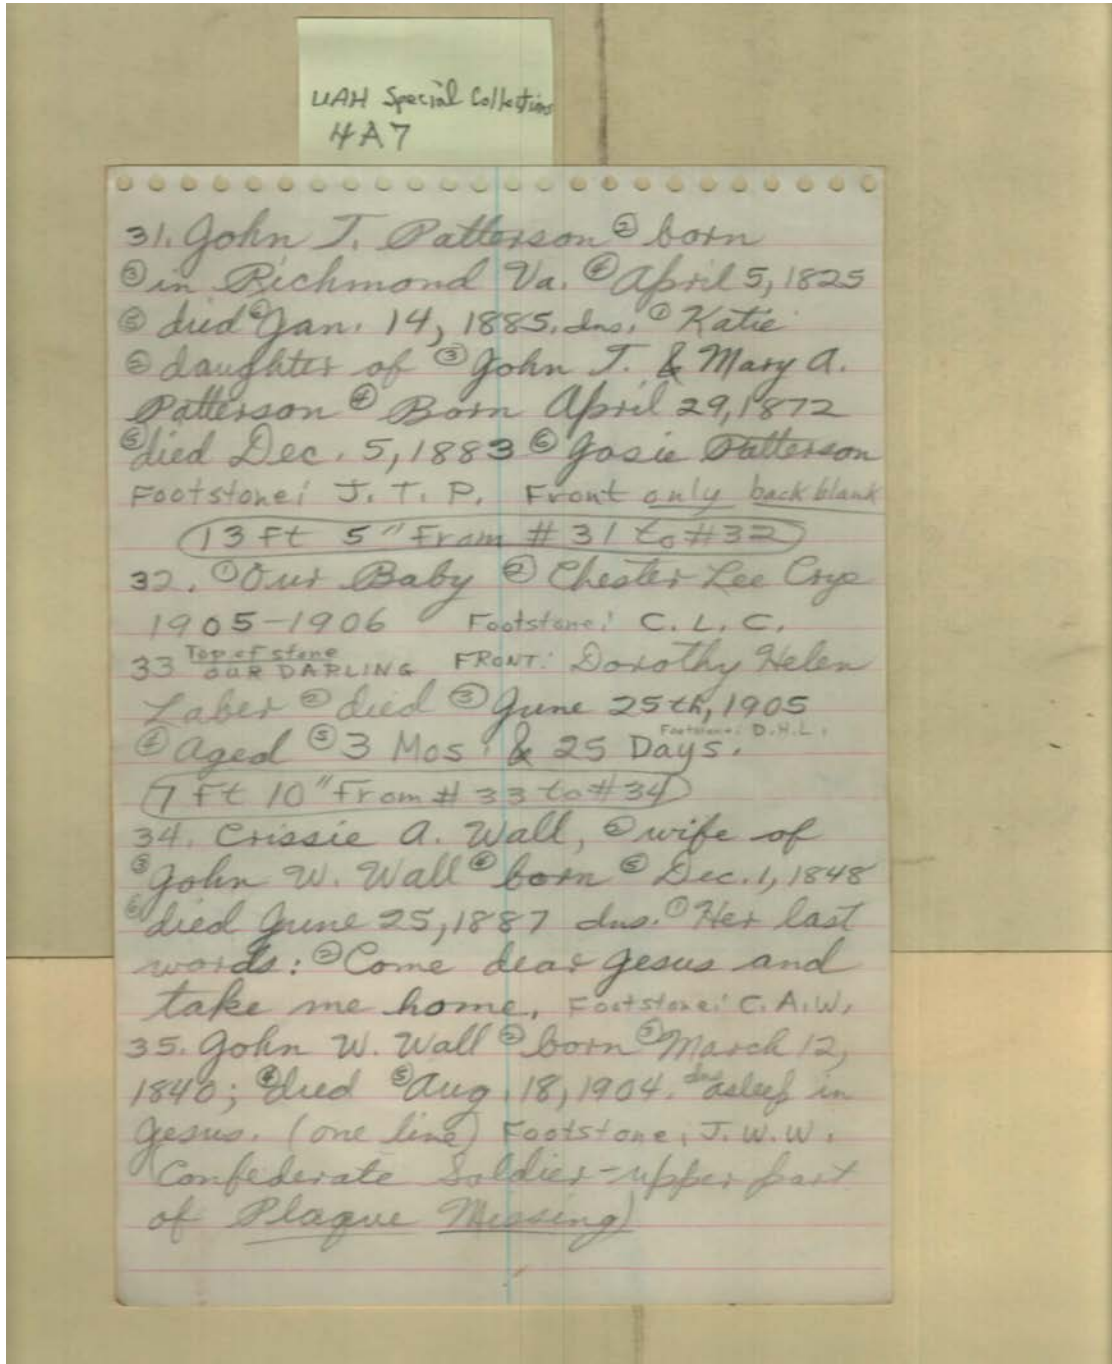 UAH Special Collections
4A7
31. John T. Patterson ② born
③ in Richmond Va. ④ April 5, 1825
⑤ died ⑥ Jan. 14, 1885. Ins. ① Katie
② daughter of ③ John T. & Mary A.
Patterson ④ Born April 29, 1872
⑤ died Dec. 5, 1883 ⑥ Josie Patterson
Footstone: J. T. P. Front only back blank
13 ft 5" from #31 to #32
32. ① Our Baby ② Chester Lee Crye
1905-1906 Footstone: C. L. C.
33 Top of stone OUR DARLING FRONT: Dorothy Helen
Laber ② died ③ June 25th, 1905
④ Aged ⑤ 3 Mos. & 25 Days. Footstone: D.H.L.
7 ft 10" from #33 to #34
34. Crissie A. Wall, ② wife of
③ John W. Wall ④ born ⑤ Dec. 1, 1848
⑥ died June 25, 1887 Ins. ① Her last
words: ② Come dear Jesus and
take me home. Footstone: C. A. W.
35. John W. Wall ② born ③ March 12,
1840; ④ died ⑤ Aug. 18, 1904. Ins asleep in
Jesus. (one line) Footstone: J. W. W.
Confederate Soldier - upper part
of Plaque Missing)